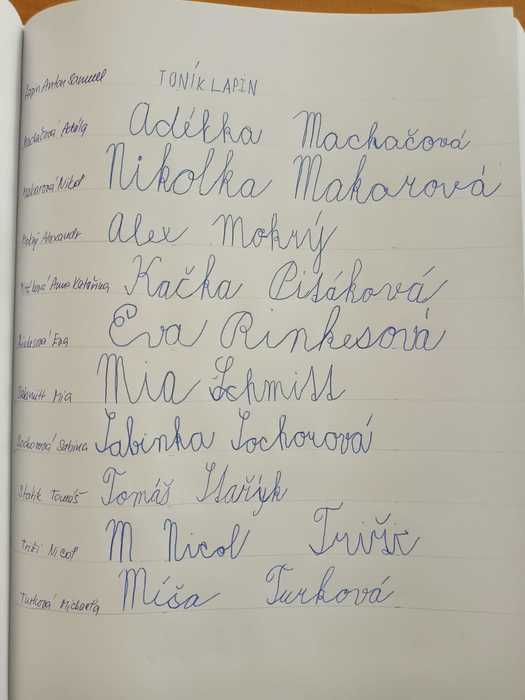 Lapin Anton Samuel TONÍK LAPIN
Machačová Adéla Adélka Machačová
Makarová Nikol Nikolka Makarová
Mokrý Alexandr Alex Mokrý
Anna Kateřina Kačka Pisáková
Rinkesová Eva Eva Rinkesová
Schmitt Mia Mia Schmitt
Sochorová Sabina Sabinka Sochorová
Stařík Tomáš Tomáš Stařík
Nicol M Nicol
Turková Michaela Míša Turková